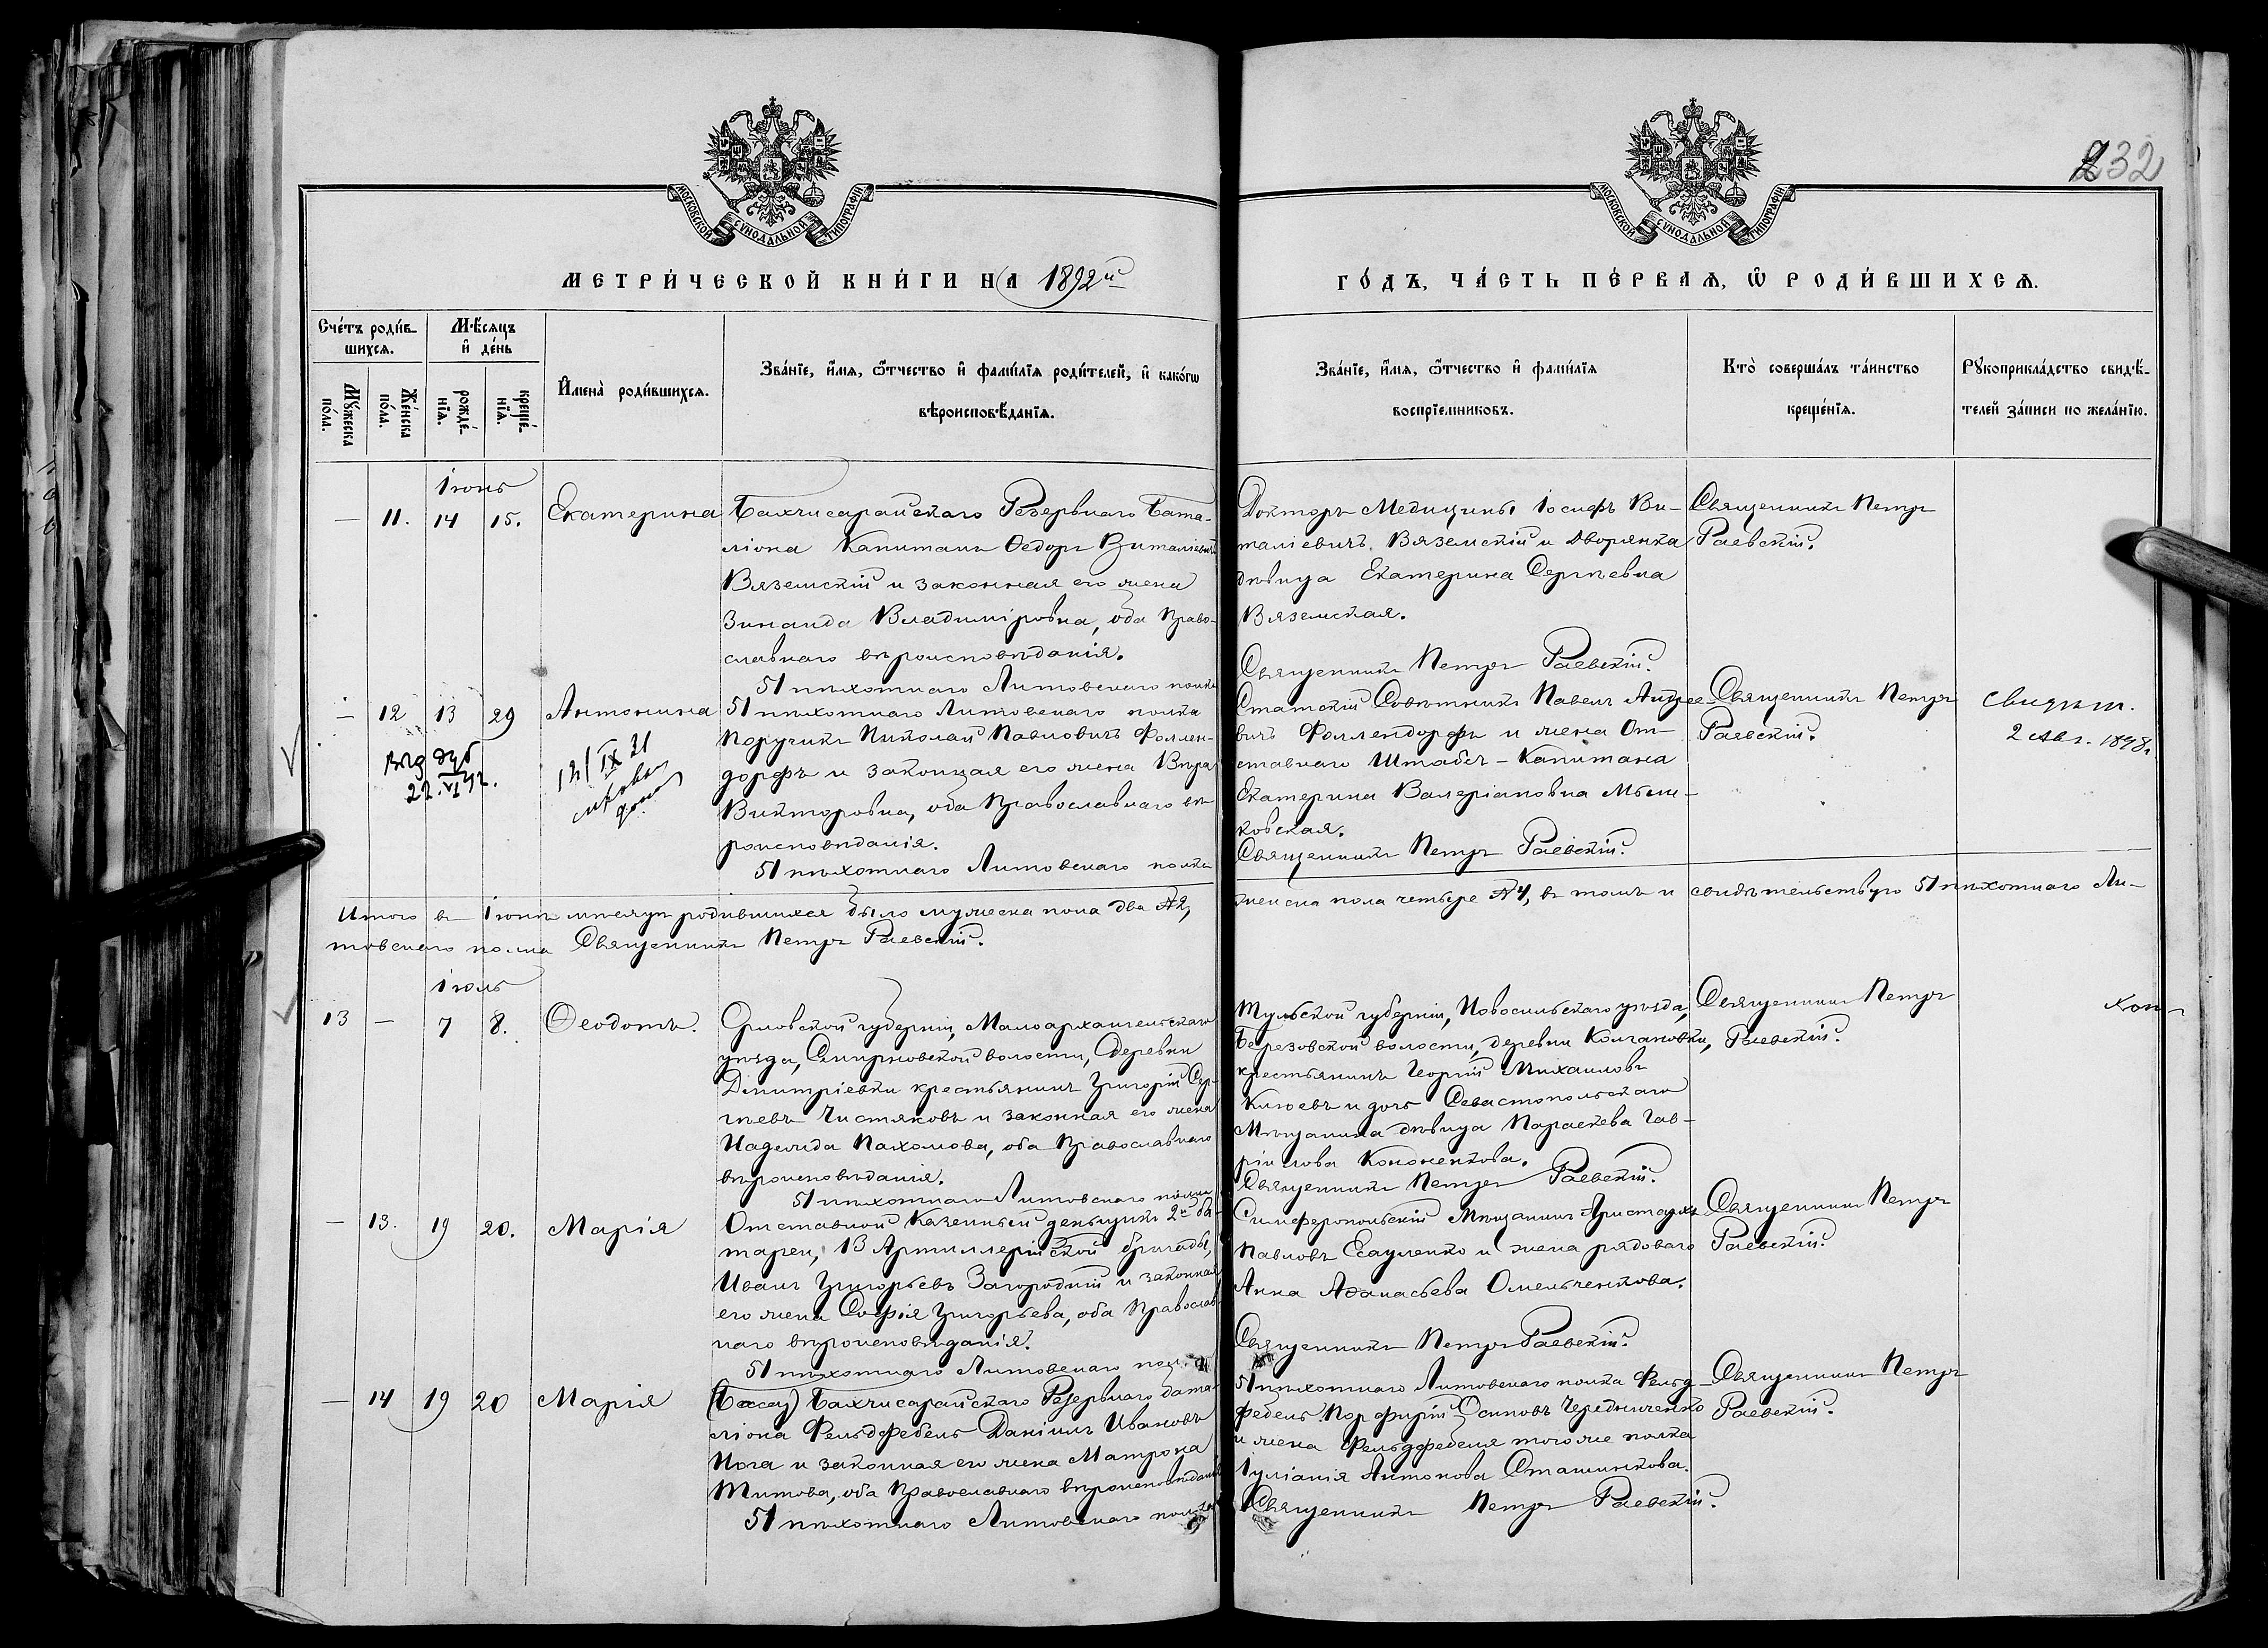 232
МОСКОВСКОЙ СѴНОДАЛЬНОЙ ТИПОГРАФІИ
МОСКОВСКОЙ СѴНОДАЛЬНОЙ ТИПОГРАФІИ
МЕТРИ́ЧЕСКОЙ КНИ́ГИ НА 1892й
ГО́ДЪ, ЧА́СТЬ ПЕ́РВАѦ, Ѡ҆ РОДИ́ВШИХСѦ.
Сче́тъ роди́в-
шихсѧ.
Мꙋ́жеска по́ла.
Же́нска по́ла.
М҃ѣсѧцъ
и҆ де́нь
рожде́-
нїѧ.
креще́-
нїѧ.
И҆мена̀ роди́вшихсѧ.
Зва́нїе, и҆́мѧ, ѻ҆́тчество и҆ фами́лїѧ роди́телей, и҆ како́гѡ
вѣроисповѣ́данїѧ.
Зва́нїе, и҆́мѧ, ѻ҆́тчество и҆ фами́лїѧ
воспрїе́мниковъ.
Кто̀ соверша́лъ та́инство
креще́нїѧ.
Рꙋкоприкла́дство свидѣ́-
телей за́писи по жела́нїю.
Іюнь
— 11. 14 15. Екатерина
Бахчисарайскаго Резервнаго Бата-
ліона Капитанъ Ѳедоръ Виталіевичъ
Вяземскій и законная его жена
Зинаида Владиміровна, оба Право-
славнаго вѣроисповѣданія.
51 пѣхотнаго Литовскаго полка
Докторъ Медицины Іосифъ Ви-
таліевичъ Вяземскій и Дворянка
дѣвица Екатерина Сергѣевна
Вяземская.
Священникъ Петръ Раевскій.
Священникъ Петръ
Раевскій.
— 12 13 29 Антонина
51 пѣхотнаго Литовскаго полка
Поручикъ Николай Павловичъ Феллен-
дорфъ и законная его жена Вѣра
Викторовна, оба Православнаго вѣ-
роисповѣданія.
51 пѣхотнаго Литовскаго полка
Статскій Совѣтникъ Павелъ Андрее-
вичъ Феллендорфъ и жена От-
ставнаго Штабсъ-Капитана
Екатерина Валеріановна
ковская.
Священникъ Петръ Раевскій.
Священникъ Петръ
Раевскій.
2 Авг. 1898
Итого въ Іюнѣ мѣсяцѣ родившихся было мужеска пола два №2,
женска пола четыре №4, въ томъ и свидѣтельствую 51 пѣхотнаго Ли-
товскаго полка Священникъ Петръ Раевскій.
Іюль
13 — 7 8. Ѳеодотъ.
Орловской губерніи, Малоархангельскаго
уѣзда, Смирновской волости, Деревни
Димитріевки крестьянинъ Григорій Сер-
гѣевъ Чистяковъ и законная его жена
Надежда Пахомова, оба Православнаго
вѣроисповѣданія.
51 пѣхотнаго Литовскаго полка
Тульской губерніи, Новосильскаго уѣзда,
Березовской волости, деревни Колгановки,
крестьянинъ Георгій Михаиловъ
Князевъ и дочь Севастопольскаго
Мѣщанина дѣвица Параскева Гав-
ріилова Кононенкова.
Священникъ Петръ Раевскій.
Священникъ Петръ
Раевскій.
— 13. 19 20. Марія
Отставной Казенный деньщикъ 2й ба-
тареи, 13 Артиллерійской бригады,
Иванъ Григорьевъ Загородній и законная
его жена Софія Григорьева, оба Православ-
наго вѣроисповѣданія.
51 пѣхотнаго Литовскаго полка
Симферопольскій Мѣщанинъ Аристархъ
Павловъ Есауленко и жена рядоваго
Анна Аѳанасьева Омельченкова.
Священникъ Петръ Раевскій.
Священникъ Петръ
Раевскій.
— 14 19 20 Марія
Бахчисарайскаго Резервнаго бата-
ліона Фельдфебель Даніилъ Ивановъ
Нога и законная его жена Матрона
Титова, оба Православнаго вѣроисповѣданія
51 пѣхотнаго Литовскаго полка
51 пѣхотнаго Литовскаго полка Фельд-
фебель Порфирій Осиповъ Чередниченко
и жена Фельдфебеля того же полка
Іуліанія Антонова Сташинкова.
Священникъ Петръ Раевскій.
Священникъ Петръ
Раевскій.